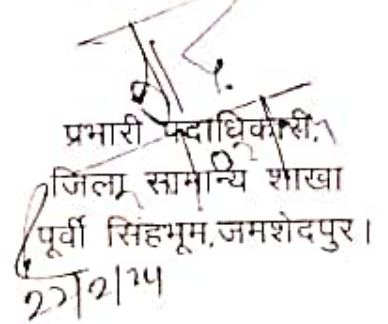 प्रभारी पदाधिकारी,
जिला सामान्य शाखा
पूर्वी सिंहभूम, जमशेदपुर।